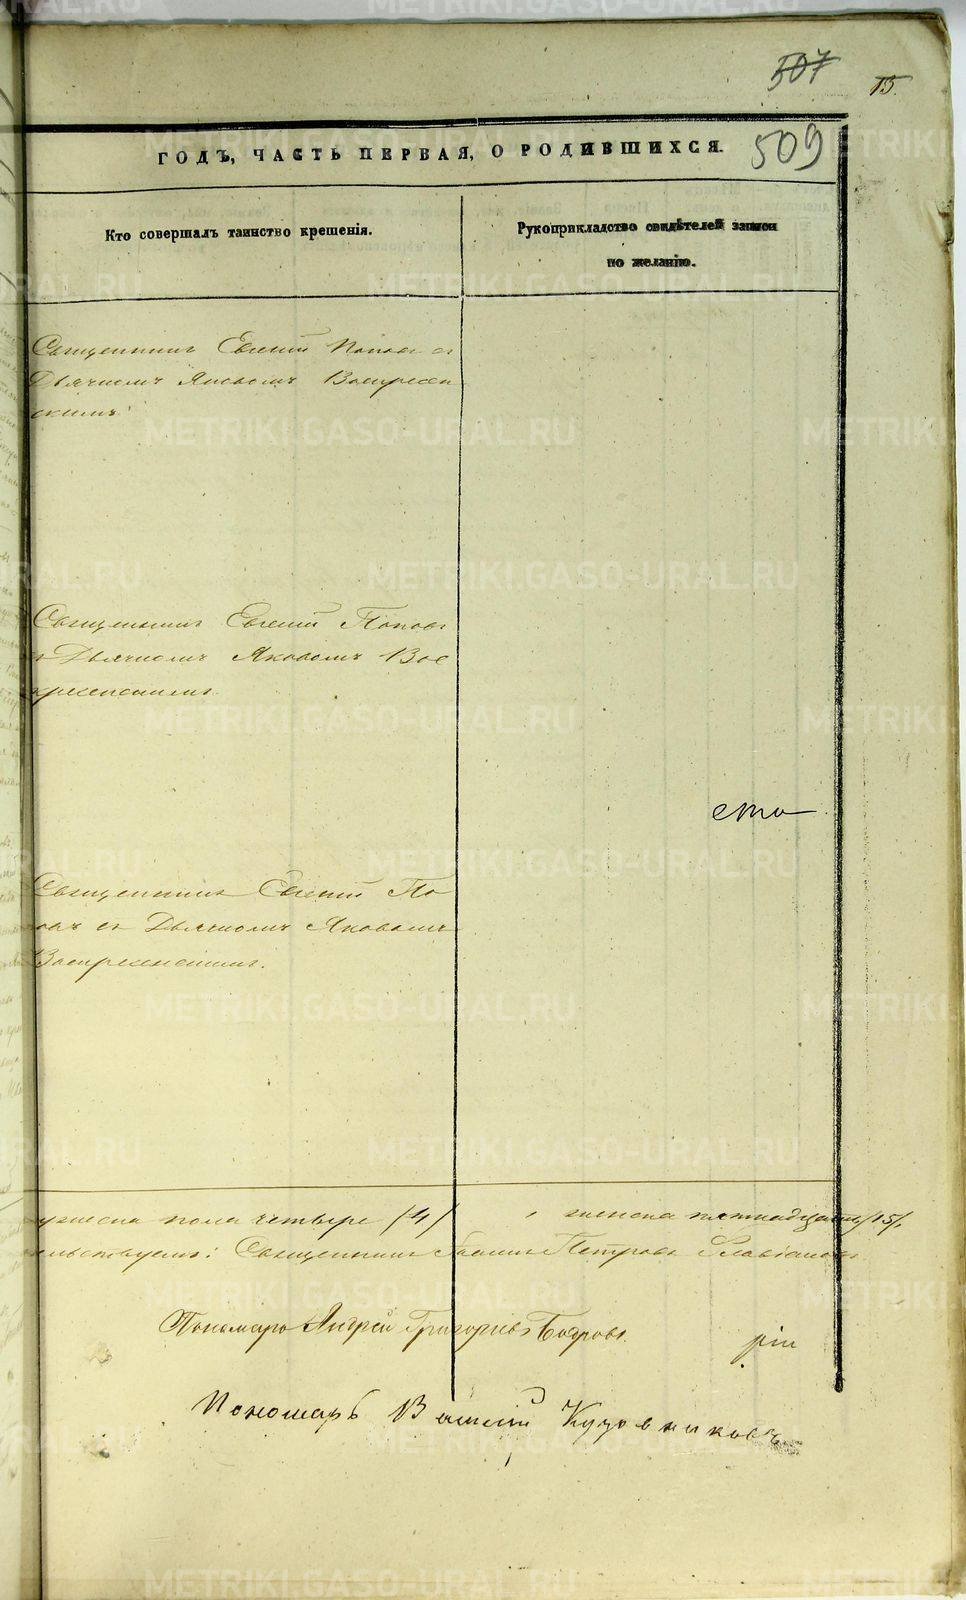 507
15
ГОДЪ, ЧАСТЬ ПЕРВАЯ, О РОДИВШИХСЯ.
509
Кто совершалъ таинство крещенія.
Рукоприкладство свидѣтелей записи
по желанію.
Священникъ Евгеній Поповъ съ
Дьячкомъ Яковомъ Воскресен
скимъ.
Священникъ Евгеній Поповъ
съ Дьячкомъ Яковомъ Вос
кресенскимъ.
ета
Священникъ Евгеній По
повъ съ Дьячкомъ Яковомъ
Воскресенскимъ.
мужеска пола четыре /4/, женска пятнадцать /15/,
Священникъ Іоаннъ Петровъ
Пономарь Андрей Григорьевъ Бобровъ.
рій
Пономарь Василій Кузовниковъ
METRIKI.GASO-URAL.RU